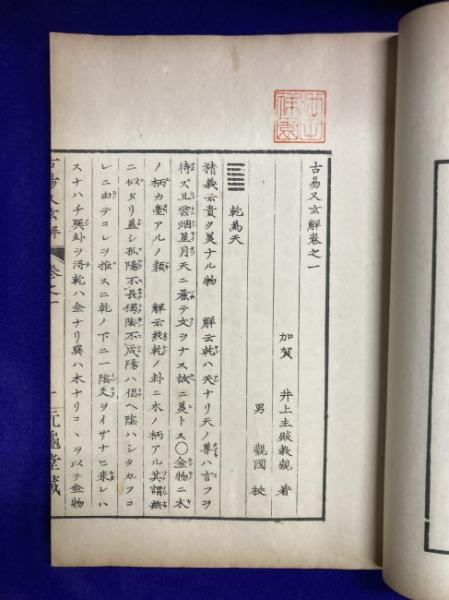 古易又玄解巻之一
加賀 井上主殿教親 著
男 觀國 校
乾為天
精義云貴ク美ナル物 解云乾ハ天ナリ天ノ尊ハ言フヲ
待ズ且雲烟星月天ニ麗テ文ヲナス故ニ美トス〇金物ニ木
ノ柄カ臺アルノ類 解云乾ノ卦ニ木ノ柄アル其謂無
ニ似タリ蓋シ孤陽不長獨陰不成陽ハ倡ヘ陰ハシタカフコ
レニ由テコレヲ推スニ乾ノ下ニ一陰爻ヲイザナヒ来レハ
スナハチ巽卦ヲ得乾ハ金ナリ巽ハ木ナリコヽヲ以テ金物
古易又玄解 巻之一